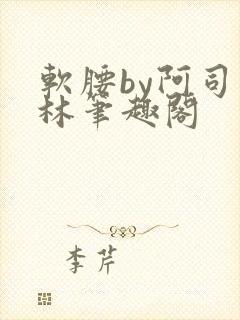 軟腰by阿司
林筆趣閣
李芹